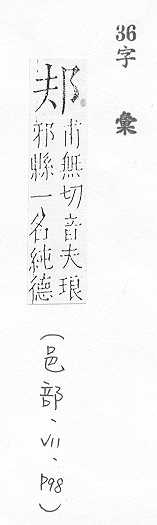 36字 彙
邞 甫無切音夫琅
邪縣一名純德
(邑部、VII、P98)